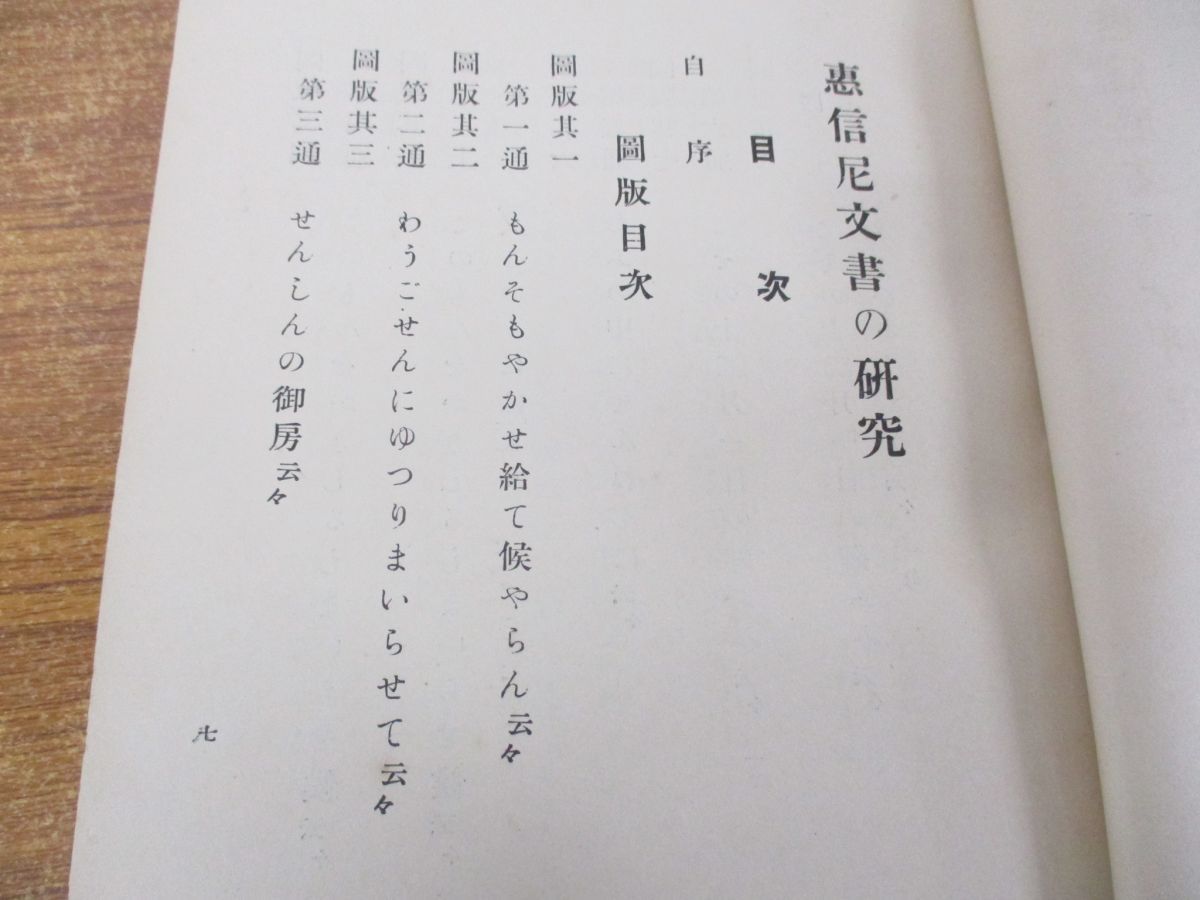 惠信尼文書の硏究
目次
自序
圖版目次
圖版其一
第一通 もんそもやかせ給て候やらん云々
圖版其二
第二通 わうごせんにゆつりまいらせて云々
圖版其三
第三通 せんしんの御房云々
七